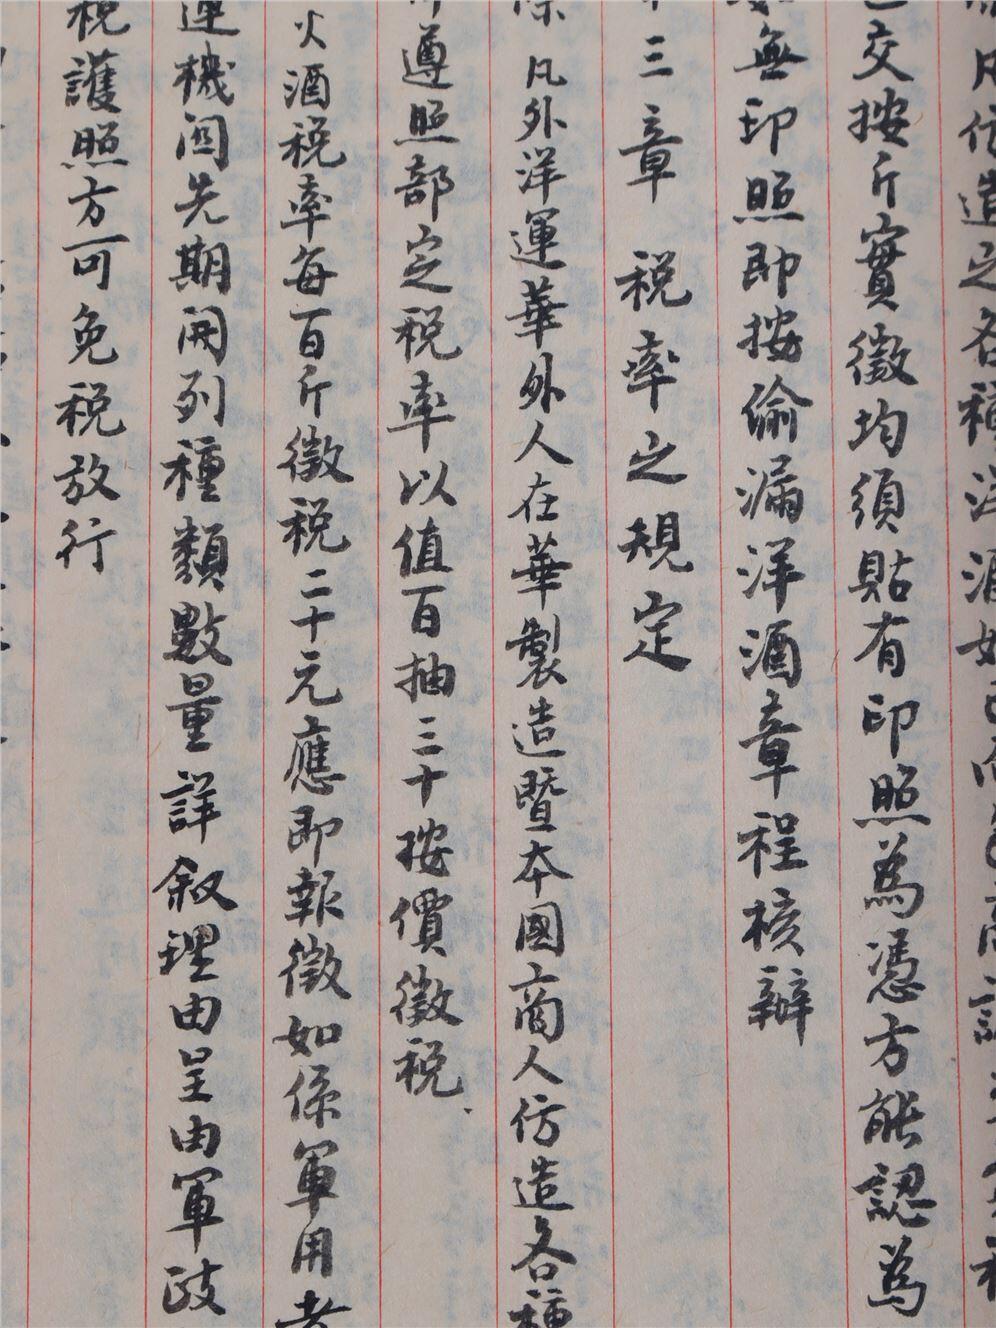 凡仿造之各種洋酒如
交按斤實徵均須貼有印照為憑方能認為
無印照即按偷漏洋酒章程核辦
三章 稅率之規定
凡外洋運華外人在華製造暨本國商人仿造各種
遵照部定稅率以值百抽三十按價徵稅
火酒稅率每百斤徵稅二十元應即報徵如係軍用者
運機關先期開列種類數量詳敘理由呈由軍政
稅護照方可免稅放行